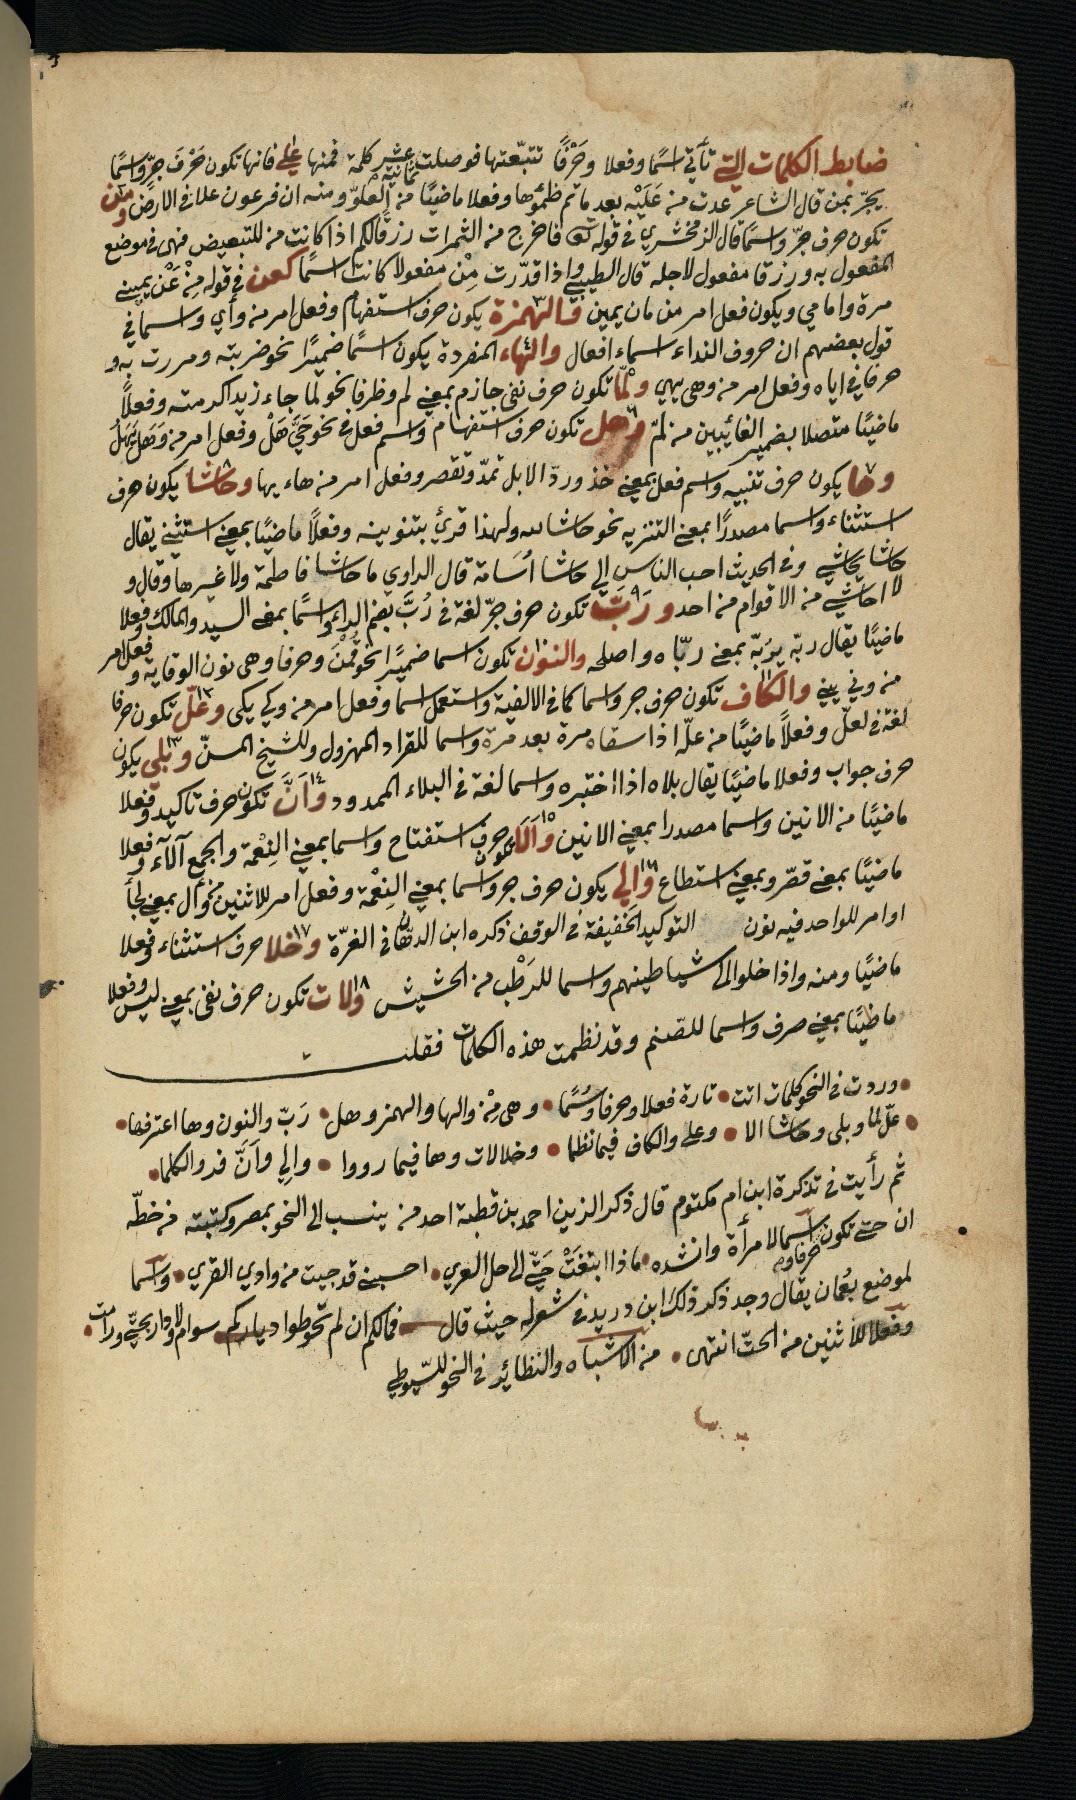 ضابط الكلمات التي تأتي اسمًا وفعلا وحَرْفًا تتبّعتها فوصلت ثمانية عشر كلمة فمنها على فانها تكون حَرْفَ جرّ واسمًا
يجرّ بمن قال الشاعر غدت من عَلَيْه بعد ما تم ظمؤها وفعلا ماضيًا من العلوّ ومنه ان فرعون علا في الارض ومن
تكون حرف جرّ واسمًا قال الزمخشري في قوله تع فاخرج من الثمرات رزقا لكم اذا كانت من للتبعيض فهى في موضع
المفعول به ورزقا مفعول لاجله قال الطيبي واذا قدّرت مِنْ مفعولا كانت اسمًا كعن في قوله مِنْ عَنْ يميني
مرة وامامي ويكون فعل امر من مان يمين ٣ فالهمزة يكون حرف استفهام وفعل امر من وأي واسما في
قول بعضهم ان حروف النداء اسماء افعال ٤ والهاء المفردة يكون اسمًا ضميرًا نحو ضربته ومررت به و
حرفا في اياه وفعل امر من وهى يهي ولمّا تكون حرف نفي جازم بمعنى لم وظرفا نحو لما جاء زيد اكرمته وفعلاً
ماضيًا متصلا بضمير الغائبين من لمّ ٦ وهل تكون حرف استفهام واسم فعل في نحو حَيَّ هَلْ وفعل امر من وَهَلَ يَهِلُ
٧ وها يكون حرف تنبيه واسم فعل بمعنى خذ وردّ الابل تمدّ وتقصر وفعل امر من هاء يها ٨ وحاشا يكون حرف
استثناء واسما مصدرًا بمعنى التنزيه نحو حاشا لله ولهذا قرئ بتنوينه وفعلًا ماضيًا بمعنى استثنى يقال
حاشا يحاشي وفي الحديث احب الناس الي حاشا اُسَامة قال الراوي ما حاشا فاطمة ولا غيرها وقال و
لا احاشي من الاقوام من احد ٩ ورَبّ تكون حرف جرّ لغة في رُبَّ بضم الراء واسمًا بمعنى السيد والمالك وفعلا
ماضيًا يقال ربّه يرُبّه بمعنى ربّاه واصلحه ١٠ والنون تكون اسما ضميرًا نحو قمْنَ وحرفا وهى نون الوقاية وفعل امر
من ونى يني ١١ والكاف تكون حرف جر واسما كما في الالفية واستعمل اسما وفعل امر من وكى يكي ١٢ وعَلّ تكون حرفا
لغة في لعلّ وفعلاً ماضيًا من علّه اذا سقاه مرة بعد مرة واسما للقراد المهزول وللشيخ المسنّ ١٣ وبلى يكون
حرف جواب وفعلا ماضيًا يقال بلاه اذا اختبره واسما لغة في البلاء الممدود ١٤ واَنَّ تكون حرف تاكيد وفعلا
ماضيًا من الانين واسما مصدرا بمعنى الانين ١٥ واَلَا يكون حرف استفتاح واسما بمعنى النِعْمة والجمع آلآء وفعلا
ماضيًا بمعنى قصّر وبمعنى استطاع ١٦ والي يكون حرف جر واسما بمعنى النِعْمة وفعل امر للاثنين من وأل بمعنى لجأ
او امر للواحد فيه نون التوكيد الخفيفة في الوقف ذكره ابن الدهّان في الغرّة ١٧ وخلا حرف استثناء وفعلا
ماضيًا ومنه واذا خلوا الى شياطينهم واسما للرَطْب من الحشيش ١٨ ولات تكون حرف نفى بمعنى ليس وفعلا
ماضيًا بمعنى صرف واسما للصّنم وقد نظمت هذه الكلمات فقلت
وردت في النحو كلمات اتت • تارة فعلا وحرفا وسُمًا • وهى مِنْ والها والهمز وهل • رَبّ والنون وها اعترفها •
• علّ لما وبلى وحاشا الا • وعلى والكاف فيما نظما • وخلا لات وها فيما رووا • والى واَنَّ فد والكلما •
ثم رأيت في تذكرة ابن ام مكتوم قال ذكر الزين احمد بن قطبة احد من ينسب الى النحو بمصر وكتبته من خطّه
ان حتى تكون حرفا واسما لامرأة وانشده • ماذا ابتغَتْ حَتَّى الى حل العري • احسبني قد جيت من وادي القري • واسما
لموضع بعُمان يقال وجد ذكر ذلك ابن دريد في شعر له حيث قال فمالكم ان لم تحوطوا دياركم سوام ولا دار بحتّي ورامت •
وفعلا للاثنين من الحتّ انتهى • من الاشباه والنظائر في النحو للسّيوطي